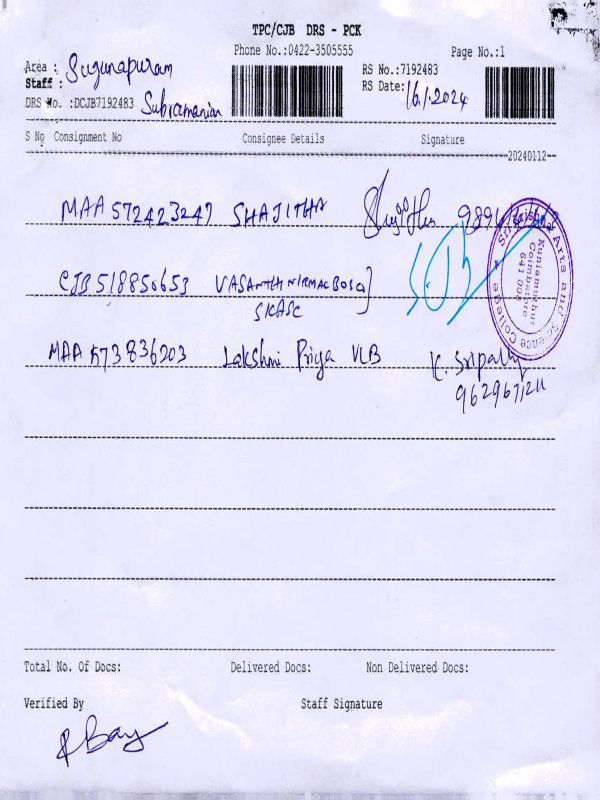 TPC/CJB DRS - PCK
Phone No.:0422-3505555 Page No.:1
Area : Sugunapuram RS No.:7192483
Staff : RS Date: 16.1.2024
DRS No. :DCJB7192483 Subramanian
S No Consignment No Consignee Details Signature
20240112
MAA 572423247 SHAJITHA
CJB 518850653 VASANTHI NIRMAL BOSE
SKASC
MAA 573836203 Lakshmi Priya VLB K. Sripally
9629671211
Sri Krishna Arts and Science College
Kuniamuthur
Coimbatore
641 008
Total No. Of Docs: Delivered Docs: Non Delivered Docs:
Verified By Staff Signature